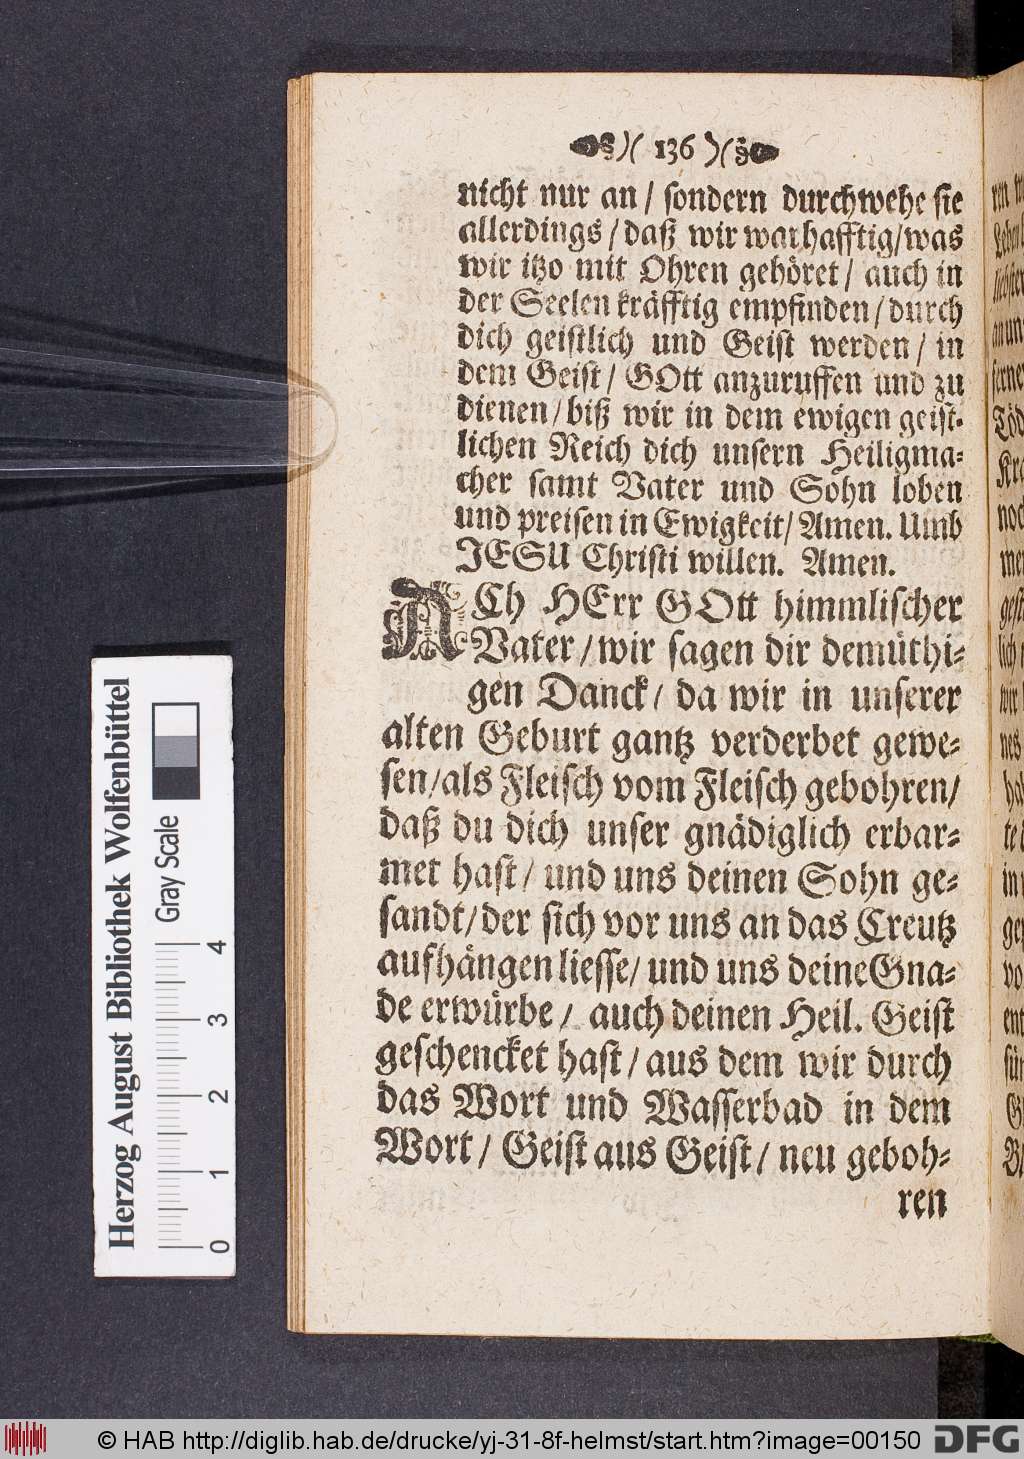 )( 136 )(
nicht nur an / sondern durchwehe sie
allerdings / daß wir warhafftig/was
wir itzo mit Ohren gehöret / auch in
der Seelen kräfftig empfinden / durch
dich geistlich und Geist werden / in
dem Geist / GOtt anzuruffen und zu
dienen / biß wir in dem ewigen geist-
lichen Reich dich unsern Heiligma-
cher samt Vater und Sohn loben
und preisen in Ewigkeit/ Amen. Umb
JESU Christi willen. Amen.
ACh HErr GOtt himmlischer
Vater / wir sagen dir demüthi-
gen Danck / da wir in unserer
alten Geburt gantz verderbet gewe-
sen/als Fleisch vom Fleisch gebohren/
daß du dich unser gnädiglich erbar-
met hast / und uns deinen Sohn ge-
sandt/der sich vor uns an das Creutz
aufhängen liesse/ und uns deine Gna-
de erwürbe / auch deinen Heil. Geist
geschencket hast / aus dem wir durch
das Wort und Wasserbad in dem
Wort / Geist aus Geist / neu geboh-
ren
Herzog August Bibliothek Wolfenbüttel
Gray Scale
0 1 2 3 4
© HAB http://diglib.hab.de/drucke/yj-31-8f-helmst/start.htm?image=00150
DFG